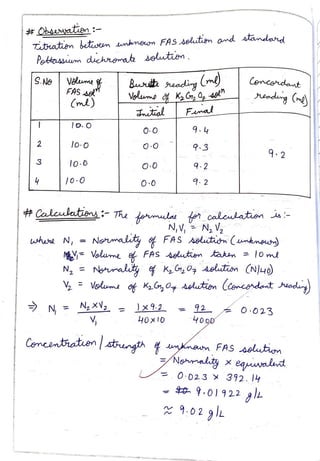 # Observation :-
Titration between unknown FAS solution and standard
Pottassium dichromate solution.
S.No Volume of FAS solⁿ (ml) Burette reading (ml) Volume of K₂Cr₂O₇ solⁿ Concordant reading (ml)
Initial Final
1 10.0 0.0 9.4
2 10.0 0.0 9.3
3 10.0 0.0 9.2
4 10.0 0.0 9.2
9.2
# Calculations :- The formulae for calculation is :-
N₁V₁ = N₂V₂
where N₁ = Normality of FAS solution (unknown)
V₁ = Volume of FAS solution taken = 10 ml
N₂ = Normality of K₂Cr₂O₇ solution (N/40)
V₂ = Volume of K₂Cr₂O₇ solution (concordant reading)
⇒ N₁ = N₂×V₂ / V₁ = 1×9.2 / 40×10 = 92 / 4000 = 0.023
Concentration / strength of unknown FAS solution
= Normality × equivalent
= 0.023 × 392.14
= 9.01922 g/L
≈ 9.02 g/L